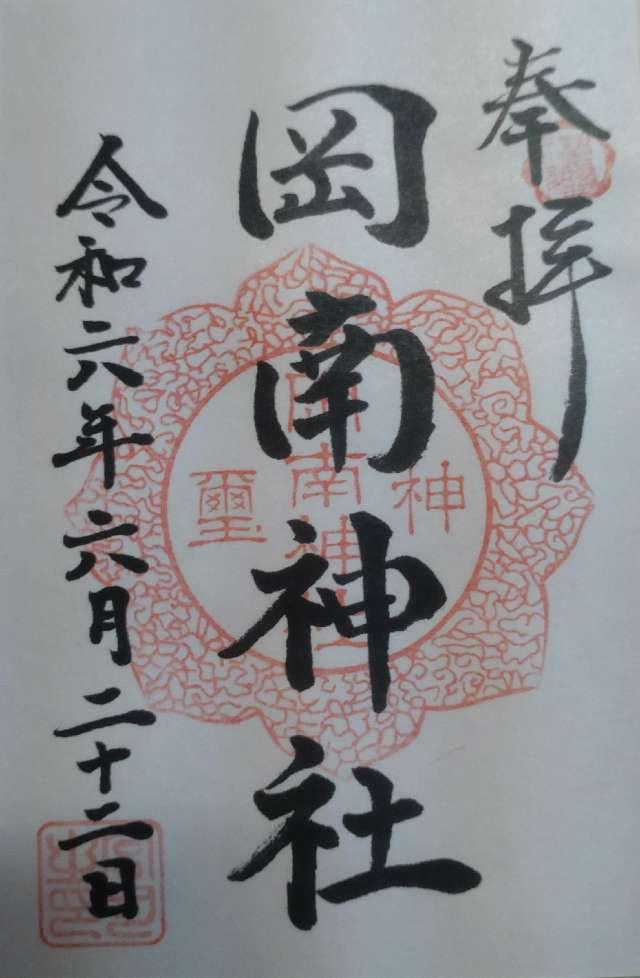 奉拝
岡南神社
令和六年六月二十二日
神
岡南神社
璽